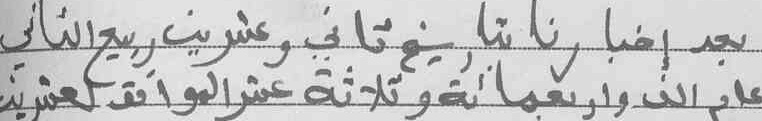 بعد إخبارنا بتاريخ ثاني وعشرين ربيع الثاني
عام ألف وأربعمائة وثلاثة عشر الموافق لعشرين